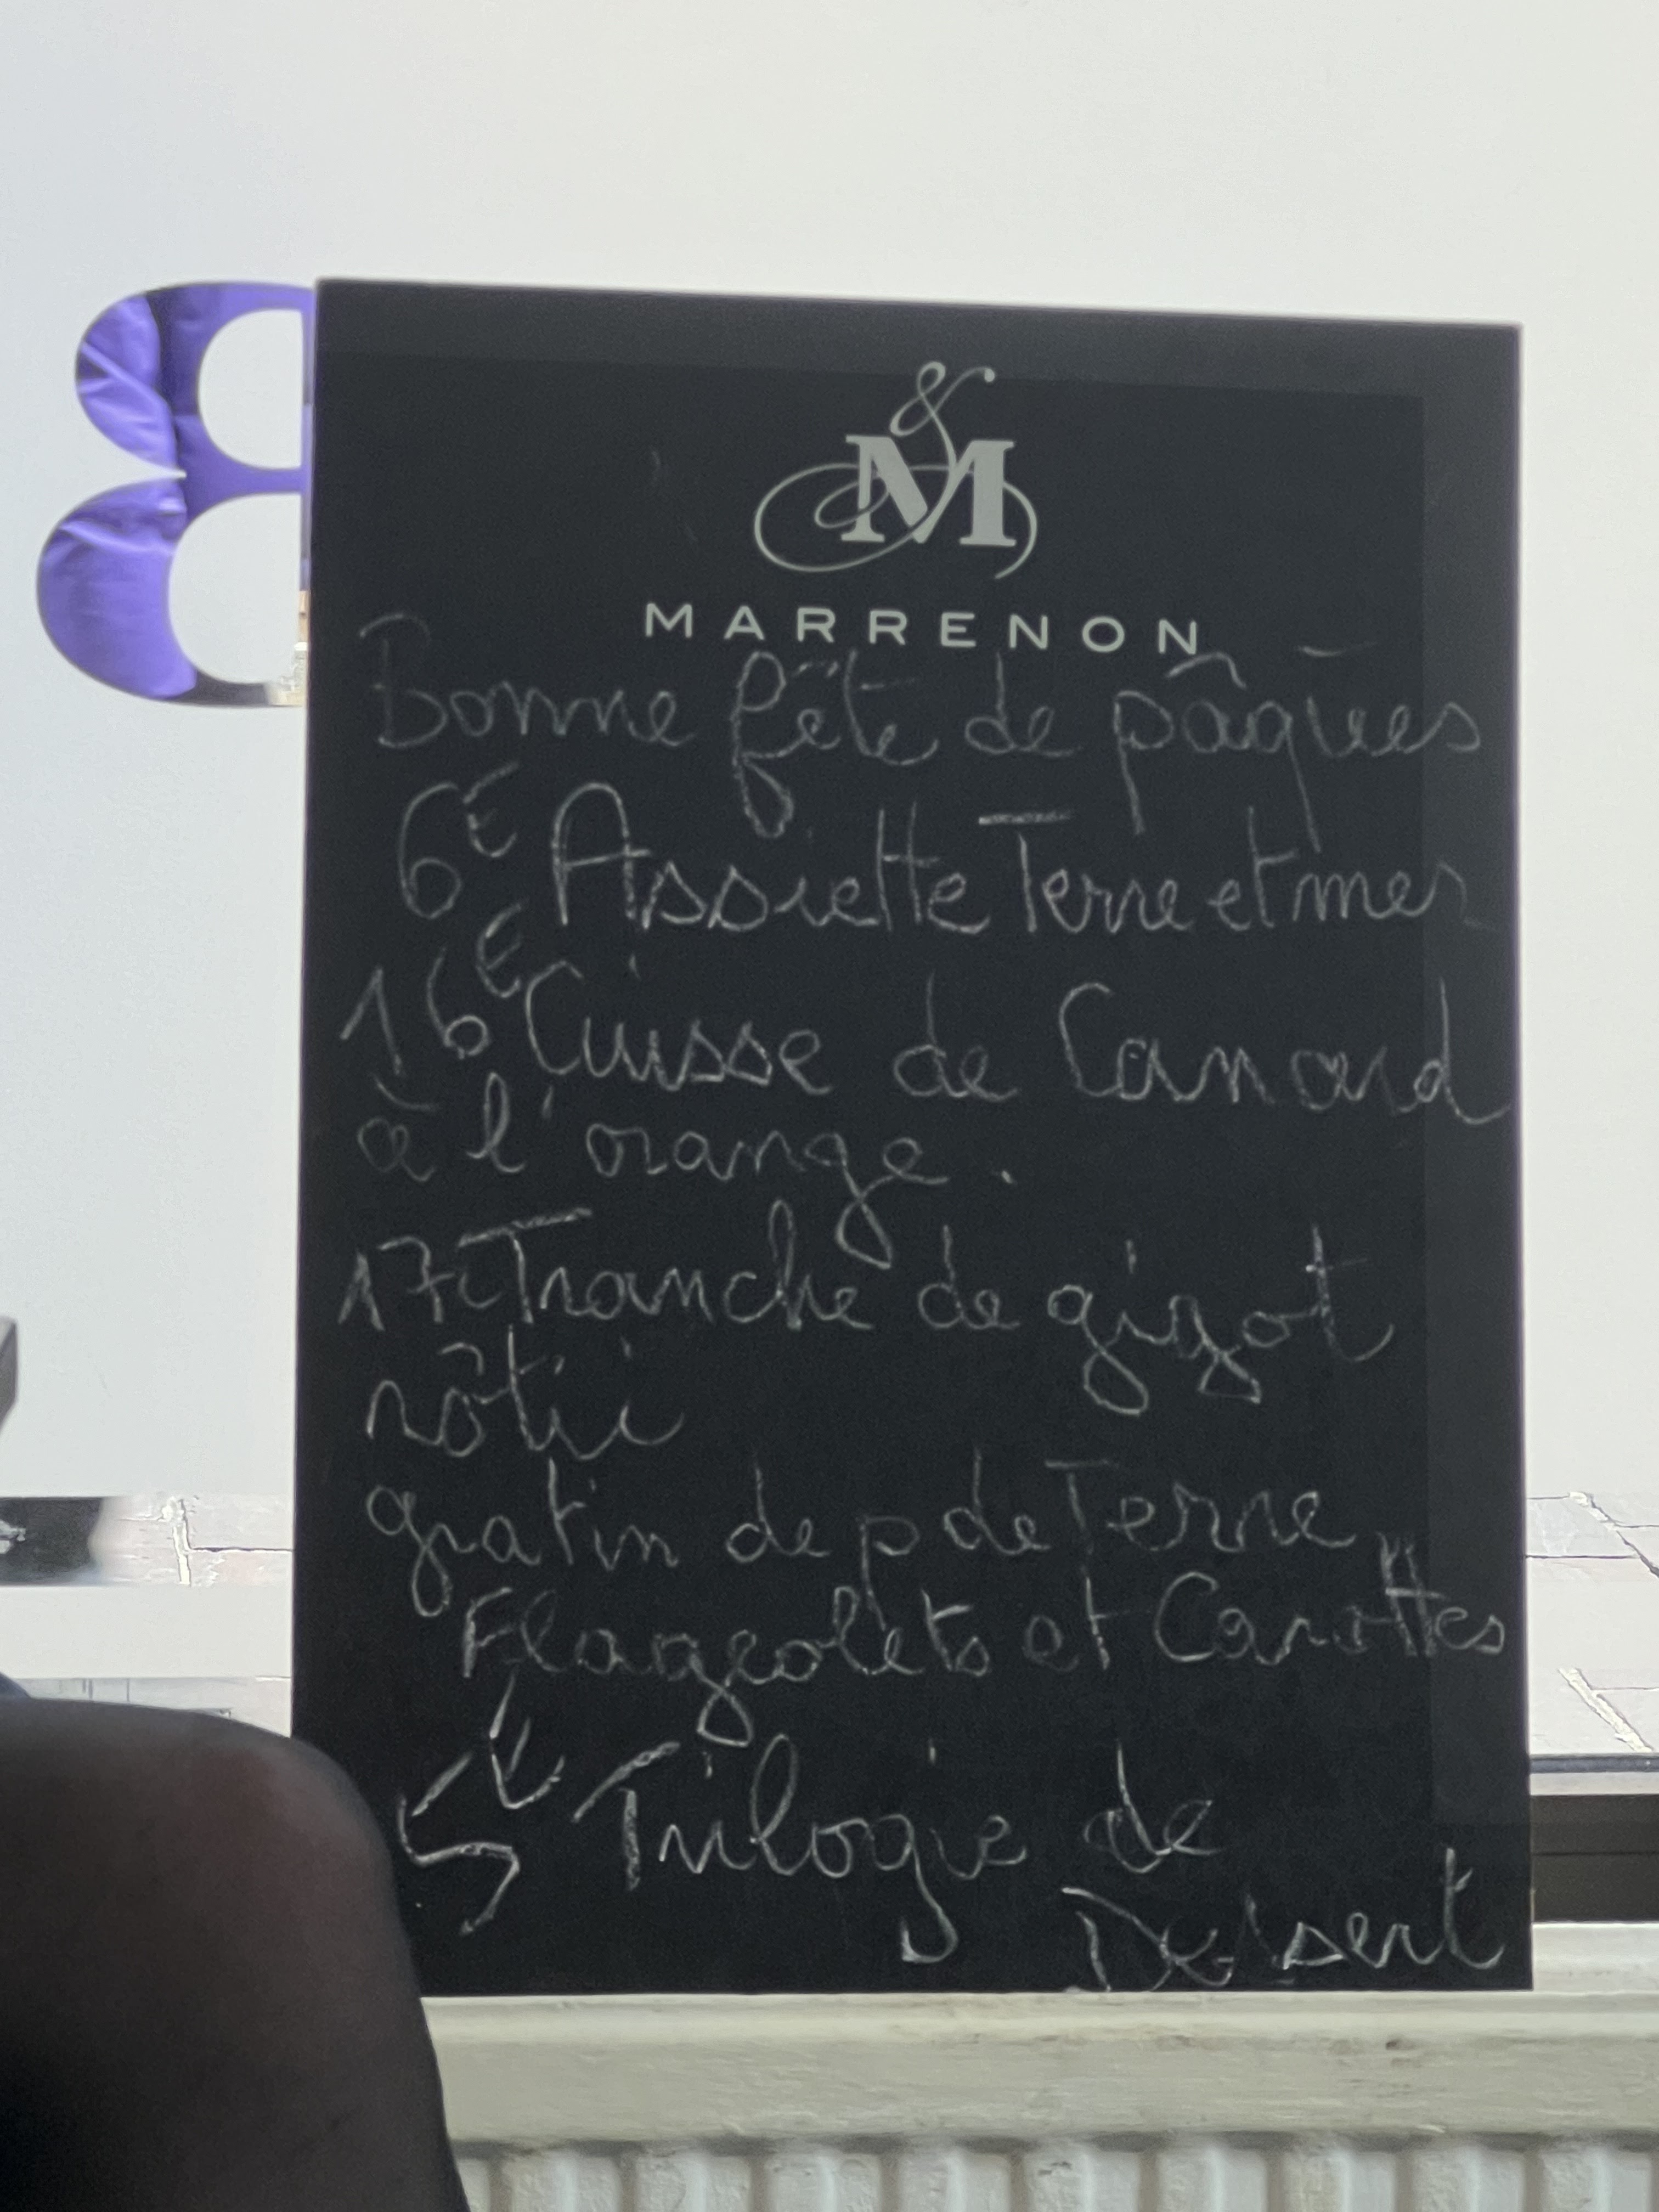 &M
MARRENON
Bonne fête de pâques
6€ Assiette Terre et mer
16€ Cuisse de Canard
à l'orange.
17€ Tranche de gigot
rôtie
gratin de p de Terre
Flageolets et Carottes
5€ Trilogie de
Dessert
B